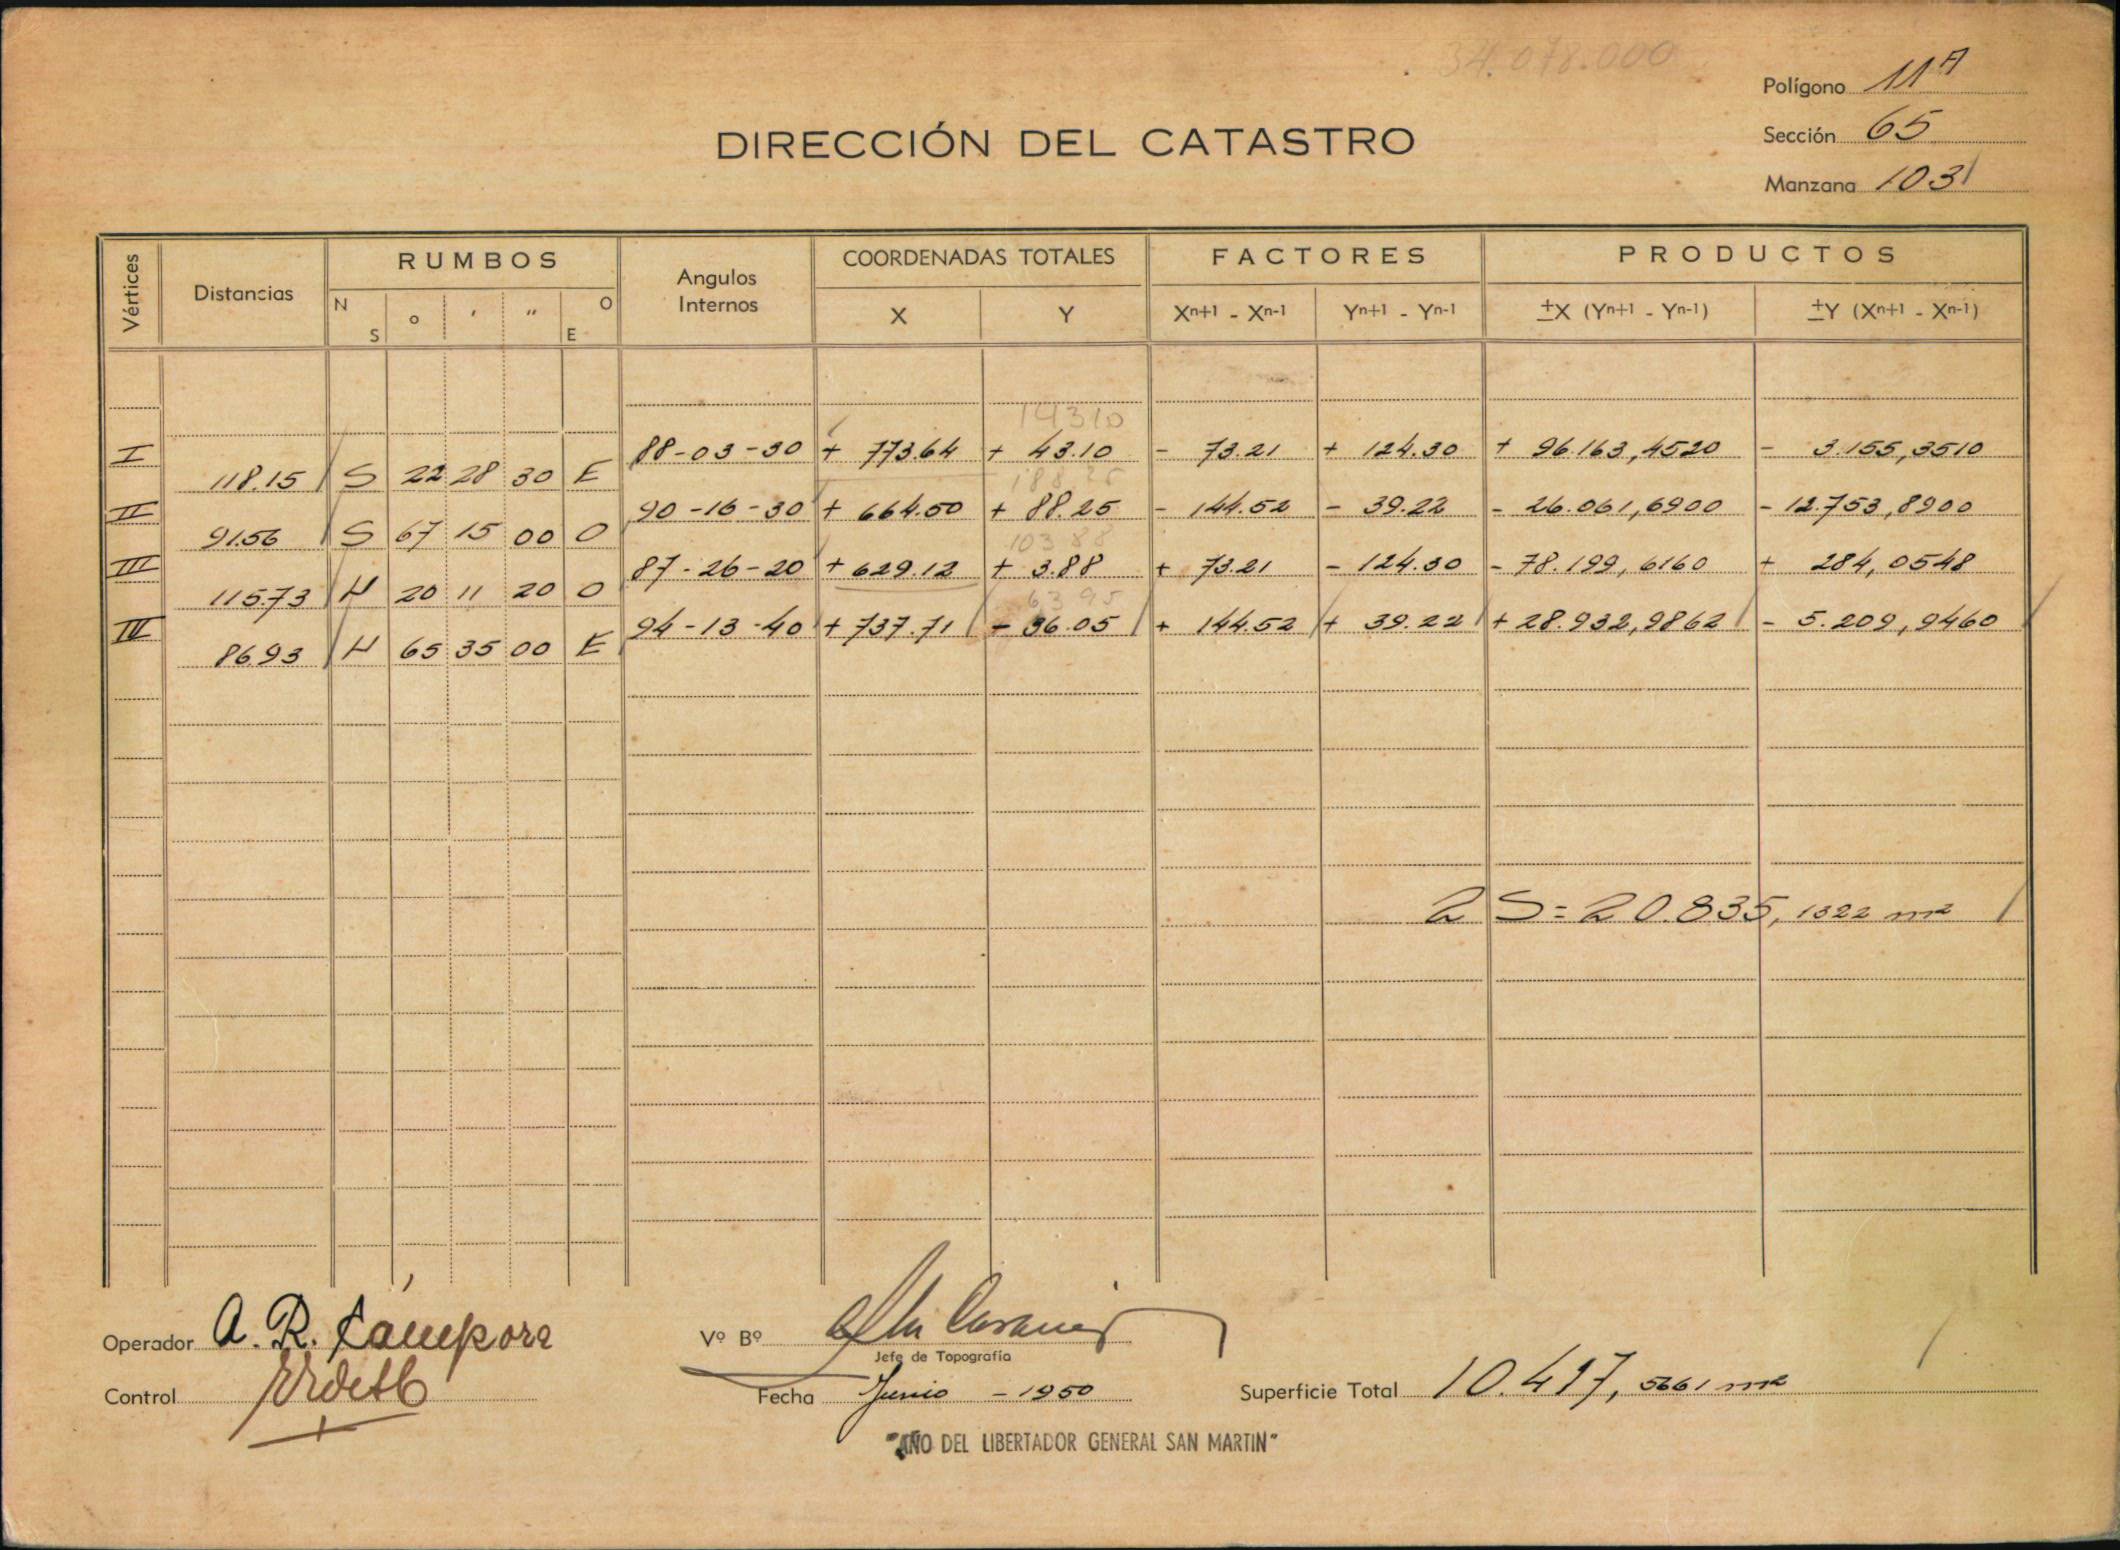 34.078.000
Polígono 11A
DIRECCIÓN DEL CATASTRO
Sección 65
Manzana 103
Vértices Distancias RUMBOS Angulos Internos COORDENADAS TOTALES FACTORES PRODUCTOS
N S o ' " O E X Y Xn+1 - Xn-1 Yn+1 - Yn-1 ±X (Yn+1 - Yn-1) ±Y (Xn+1 - Xn-1)
14310
I 88-03-30 + 773.64 + 43.10 - 73.21 + 124.30 + 96.163,4520 - 3.155,3510
118.15 S 22 28 30 E
188.25
II 90-16-30 + 664.50 + 88.25 - 144.52 - 39.22 - 26.061,6900 - 12.753,8900
91.56 S 67 15 00 O
103 88
III 87-26-20 + 629.12 + 3.88 + 73.21 - 124.30 - 78.199,6160 + 284,0548
115.73 N 20 11 20 O
63 95
IV 94-13-40 + 737.71 - 36.05 + 144.52 + 39.22 + 28.932,9862 - 5.209,9460
86.93 N 65 35 00 E
2 S = 20.835,1322 m2
Operador A. R. Cámpora
Vº Bº
Jefe de Topografía
Control
Fecha Junio - 1950
Superficie Total 10.417,5661 m2
"AÑO DEL LIBERTADOR GENERAL SAN MARTIN"